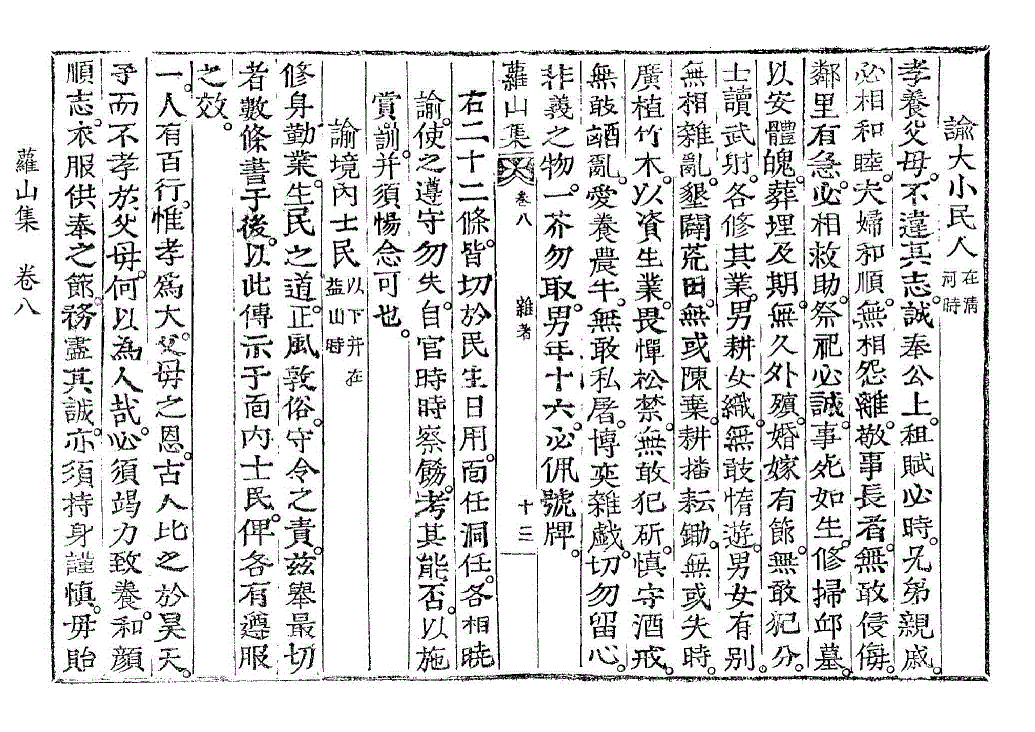 諭大小民人在清河時
孝養父母。不違其志。誠奉公上。租賦必時。兄弟親戚。
必相和睦。夫婦和順。無相怨離。敬事長者。無敢侵侮。
鄰里有急。必相救助。祭祀必誠。事死如生。修掃邱墓。
以安體魄。葬埋及期。無久外殯。婚嫁有節。無敢犯分。
士讀武射。各修其業。男耕女織。無敢惰遊。男女有別。
無相雜亂。墾闢荒田。無或陳棄。耕播耘鋤。無或失時。
廣植竹木。以資生業。畏憚松禁。無敢犯斫。愼守酒戒。
無敢酗亂。愛養農牛。無敢私屠。博奕雜戱。切勿留心。
非義之物。一芥勿取。男年十六。必佩號牌。
蘿山集 卷八 雜著 十三
右二十二條。皆切於民生日用。面任洞任。各相曉
諭。使之遵守勿失。自官時時察飭。考其能否。以施
賞罰。并須惕念可也。
諭境內士民以下并在益山時
修身勤業。生民之道。正風敦俗。守令之責。玆擧最切
者數條書于後。以此傳示于面內士民。俾各有遵服
之效。
一。人有百行。惟孝爲大。父母之恩。古人比之於昊天。
子而不孝於父母。何以為人哉。必須竭力致養。和顔
順志。衣服供奉之節。務盡其誠。亦須持身謹愼。毋貽
蘿山集 卷八